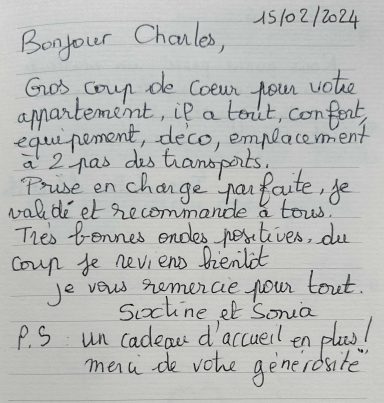 15/02/2024
Bonjour Charles,
Gros coup de coeur pour votre
appartement, il a tout, confort,
equipement, déco, emplacement
à 2 pas des transports.
Prise en charge parfaite, je
validé et recommande à tous.
Très bonnes ondes positives, du
coup je reviens bientôt
je vous remercie pour tout.
Sixtine et Sonia
P.S : un cadeau d'accueil en plus!
merci de votre générosité"